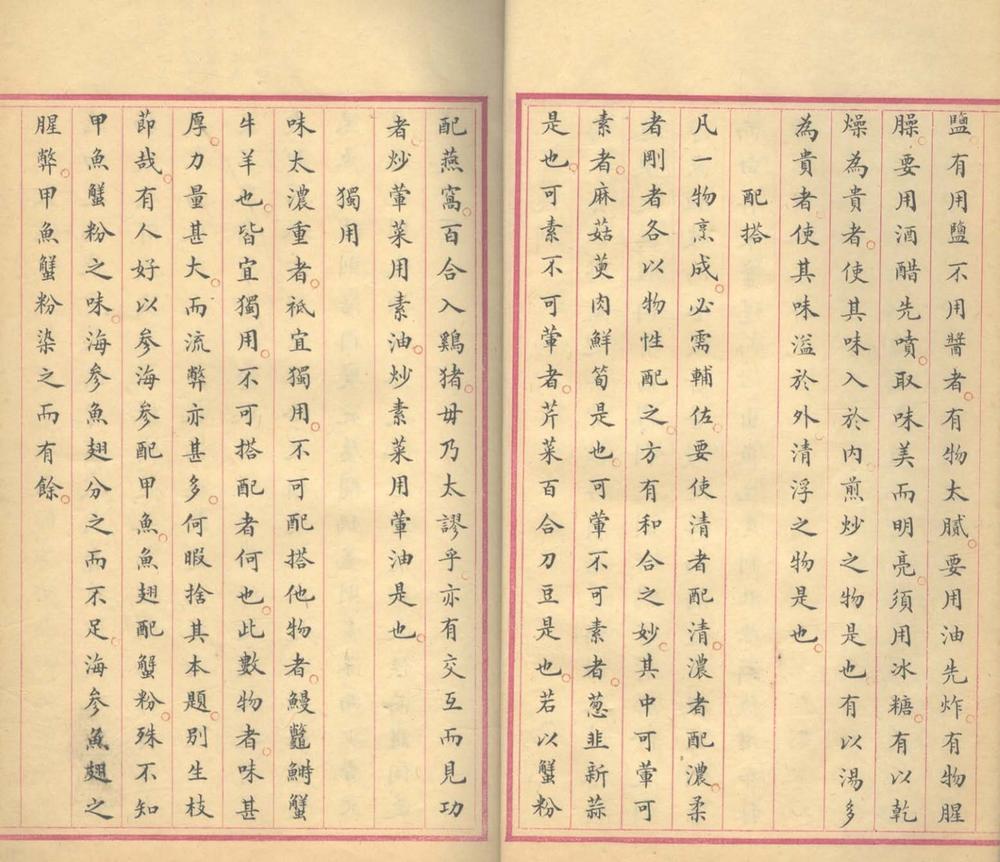 鹽有用鹽不用醬者有物太膩要用油先炸有物腥
臊要用酒醋先噴取味美而明亮須用冰糖有以乾
燥為貴者使其味入於內煎炒之物是也有以湯多
為貴者使其味溢於外清浮之物是也
配搭
凡一物烹成必需輔佐要使清者配清濃者配濃柔
者剛者各以物性配之方有和合之妙其中可葷可
素者麻菇茰肉鮮筍是也可葷不可素者葱韭新蒜
是也可素不可葷者芹菜百合刀豆是也若以蟹粉
配燕窩百合入鷄猪毋乃太謬乎亦有交互而見功
者炒葷菜用素油炒素菜用葷油是也
獨用
味太濃重者祗宜獨用不可配搭他物者鰻鼈鰣蟹
牛羊也皆宜獨用不可搭配者何也此數物者味甚
厚力量甚大而流弊亦甚多何暇捨其本題別生枝
節哉有人好以參海參配甲魚魚翅配蟹粉殊不知
甲魚蟹粉之味海參魚翅分之而不足海參魚翅之
腥弊甲魚蟹粉染之而有餘